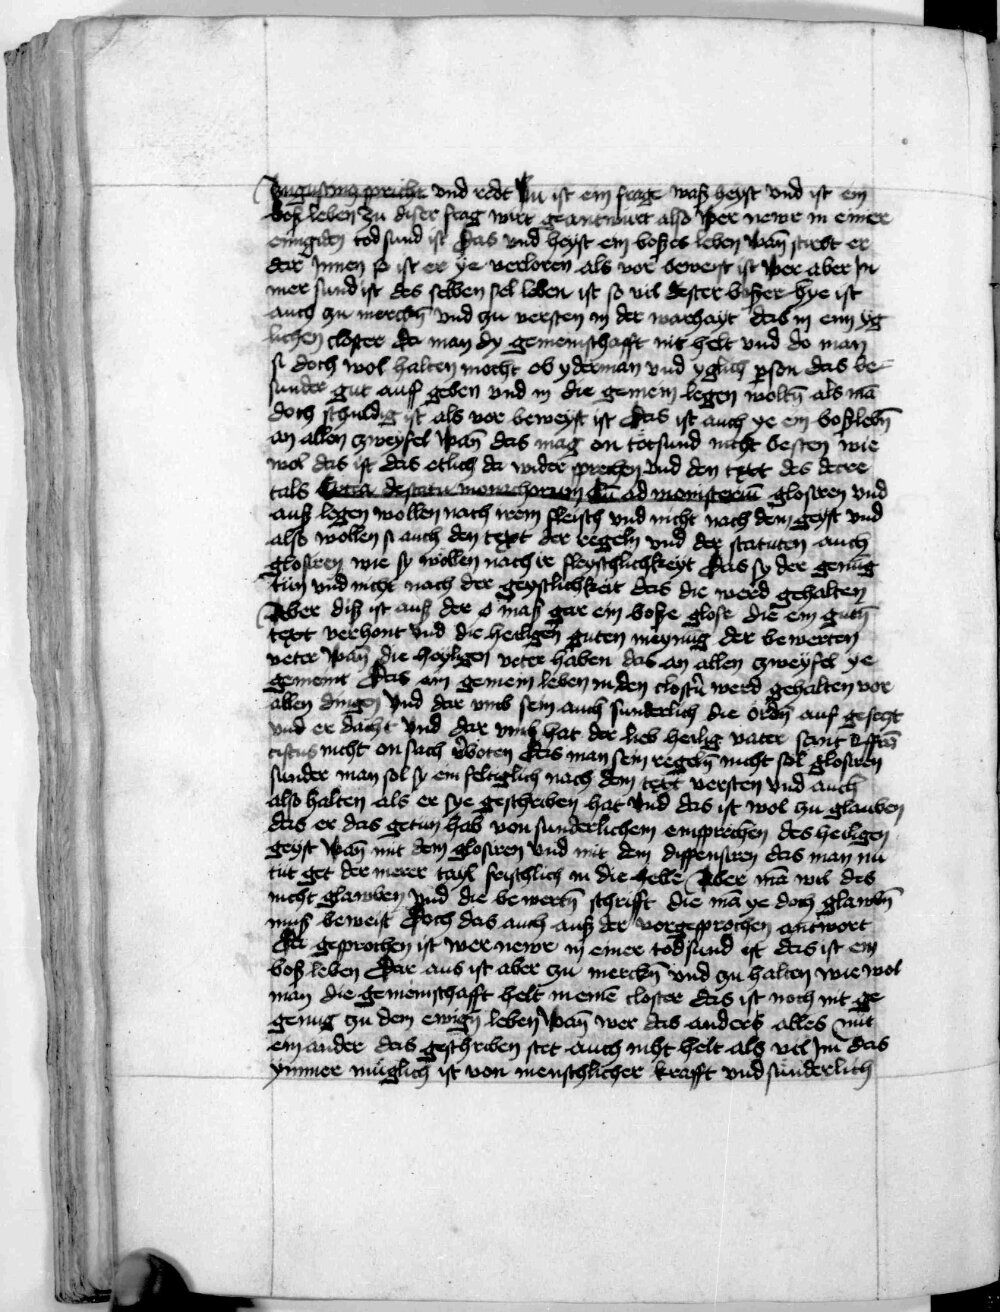 Augustinus spricht und redt Nu ist ein frage waß heyst und ist ein
boß leben zu diser frag wirt geantwurt also Wer newr in einer
einigen tod sund ist Das und heyst ein boßes leben Wan̄ stirbt er
dar Innen so ist er ye verloren als vor beweyst ist Wer aber In
mer sund ist des selben sel leben ist so vil dester boßer hye ist
auch zu mercken̄ und zu versten in der warhayt das in eim yg
lichen closter da man dy gemeinschafft nit helt und do man
si doch wol halten mocht ob yderman und yglich pson das be
sunder gut auff geben und in die gemein legen wolten̄ als mā
doch schuldig ist als vor beweyst ist Das ist auch ye ein boß lebn̄
an allen zweyfel Wan̄ das mag on totsund nicht besten wie
wol das ist das etlich da wider sprechen und den text des decre
tals Extra de statu monachorum Cū ad monisteriū glosiren und
auß legen wollen nach irem fleisch und nicht nach dem geyst und
also wollen si auch den text der regeln und der statuten auch
glosiren wie sy wollen nach ir fleyschlichkeyt Das sy der genūg
tun und nicht nach der geystlichkeit das die werd gehalten
Aber diß ist auß der o maß gar ein boße glose die ein guten̄
text verhont und die heiligen guten meynūg der bewerten
veter Wan̄ die heyligen veter haben das an allen zweyfel ye
gemeint Das ein gemein leben in den clostern̄ werd gehalten vor
allen dingen Und dar umb sein auch sunderlich die ordn̄ auf gesetzt
und er dacht Und dar umb hat der lieb heilig vater sant Frā
ciscus nicht on sach v̄boten Das man sein regeln̄ nicht sol glosiren
sunder man sol sy ein feltiglich nach dem text versten und auch
also halten als er sye geschriben hat Und das ist wol zu glauben
das er das getun hab von sunderlichem einsprechen des heiligen
geyst Wan̄ mit dem glosiren und mit dem dispensiren das man nu
tut get der merer tayl in die helle Aber mā wil des
nicht glawben Und die bewertn̄ schrifft die mā ye doch glawbn̄
muß beweist Doch das auch auß der vorgesprochen antwort
Da gesprochen ist wer newr in einer todsund ist das ist ein
boß leben Dar aus ist aber zu mercken̄ und zu halten wie wol
man die gemeinschafft helt in einē closter das ist noch nit ge
genug zu dem ewign̄ leben Wan̄ wer das anders alles mit
ein ander das geschriben stet auch nicht helt als vil Im das
ymmer muglich ist von menschlicher krafft und sunderlich